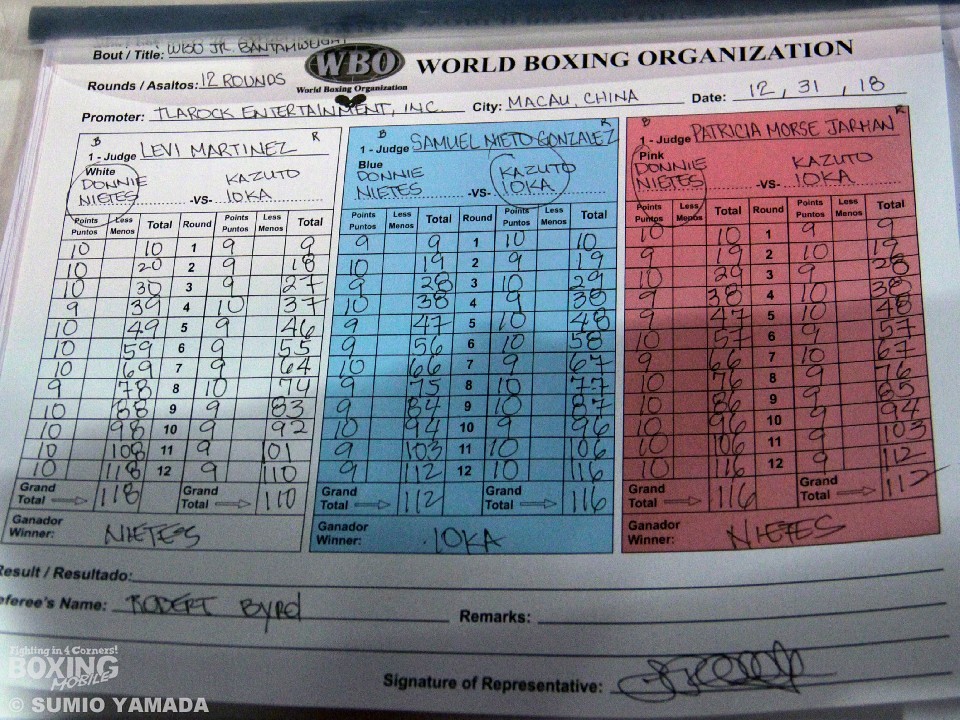 Bout / Title: WBO JR. BANTAMWEIGHT
WBO
World Boxing Organization
WORLD BOXING ORGANIZATION
Rounds / Asaltos: 12 ROUNDS
Promoter: TLAROCK ENTERTAINMENT, INC. City: MACAU, CHINA Date: 12, 31, 18
B R
1 - Judge LEVI MARTINEZ
White
DONNIE NIETES -VS- KAZUTO IOKA
Points Puntos Less Menos Total Round Points Puntos Less Menos Total
10 10 1 9 9
10 20 2 9 18
10 30 3 9 27
9 39 4 10 37
10 49 5 9 46
10 59 6 9 55
10 69 7 9 64
9 78 8 10 74
10 88 9 9 83
10 98 10 9 92
10 108 11 9 101
10 118 12 9 110
Grand Total 118 Grand Total 110
Ganador Winner: NIETES
B R
1 - Judge SAMUEL NIETO GONZALEZ
Blue
DONNIE NIETES -VS- KAZUTO IOKA
Points Puntos Less Menos Total Round Points Puntos Less Menos Total
9 9 1 10 10
10 19 2 9 19
9 28 3 10 29
10 38 4 9 38
9 47 5 10 48
9 56 6 10 58
10 66 7 9 67
9 75 8 10 77
9 84 9 10 87
10 94 10 9 96
9 103 11 10 106
9 112 12 10 116
Grand Total 112 Grand Total 116
Ganador Winner: IOKA
B R
1 - Judge PATRICIA MORSE JARMAN
Pink
DONNIE NIETES -VS- KAZUTO IOKA
Points Puntos Less Menos Total Round Points Puntos Less Menos Total
10 10 1 9 9
9 19 2 10 19
10 29 3 9 28
9 38 4 10 38
9 47 5 10 48
10 57 6 9 57
9 66 7 10 67
10 76 8 9 76
10 86 9 9 85
10 96 10 9 94
10 106 11 9 103
10 116 12 9 112
Grand Total 116 Grand Total 112
Ganador Winner: NIETES
Result / Resultado:
eferee's Name: ROBERT BYRD Remarks:
Signature of Representative:
Fighting in 4 Corners!
BOXING
MOBILE
© SUMIO YAMADA